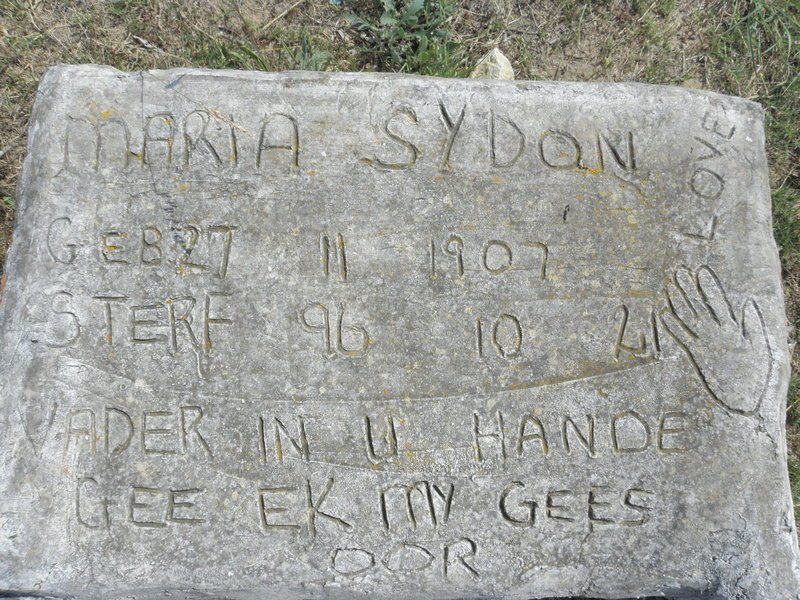 MARIA SYDON
LOVE
GEB 27 11 1907
STERF 96 10 21
VADER IN U HANDE
GEE EK MY GEES
OOR